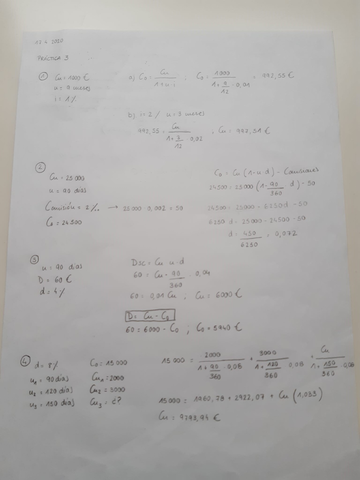 PRÁCTICA 3
① Cn = 1000 €
n = 9 meses
i = 1%
a) C₀ = Cn / (1 + n · i) ; C₀ = 1000 / (1 + 9/12 · 0,01) = 992,55 €
b) i = 2% n = 9 meses
992,55 = Cn / (1 + 9/12 · 0,02)
②
Cn = 25.000
n = 90 días
Comisión = 2‰ → 25.000 · 0,002 = 50
C₀ = 24.500
C₀ = Cn (1 - n · d) - Comisiones
24.500 = 25.000 (1 - 90/360 · d) - 50
24500 = 25000 - 6250 d - 50
6250 d = 25000 - 24500 - 50
d = 450/6250 = 0,072
③
n = 90 días
D = 60 €
d = 4%
Dsc = Cn · n · d
60 = Cn · 90/360 · 0,04
60 = 0,01 Cn ; Cn = 6000 €
D = Cn - C₀
60 = 6000 - C₀ ; C₀ = 5940 €
④
C₀ = 15000
n₁ = 90 días Cn₁ = 2000
n₂ = 120 días Cn₂ = 3000
n₃ = 150 días Cn₃ = ¿?
15000 = 2000 / (1 + 90/360 · 0,08) + 3000 / (1 + 120/360 · 0,08) + Cn / (1 + 150/360 · 0,08)
15000 = 1960,78 + 2922,07 + Cn